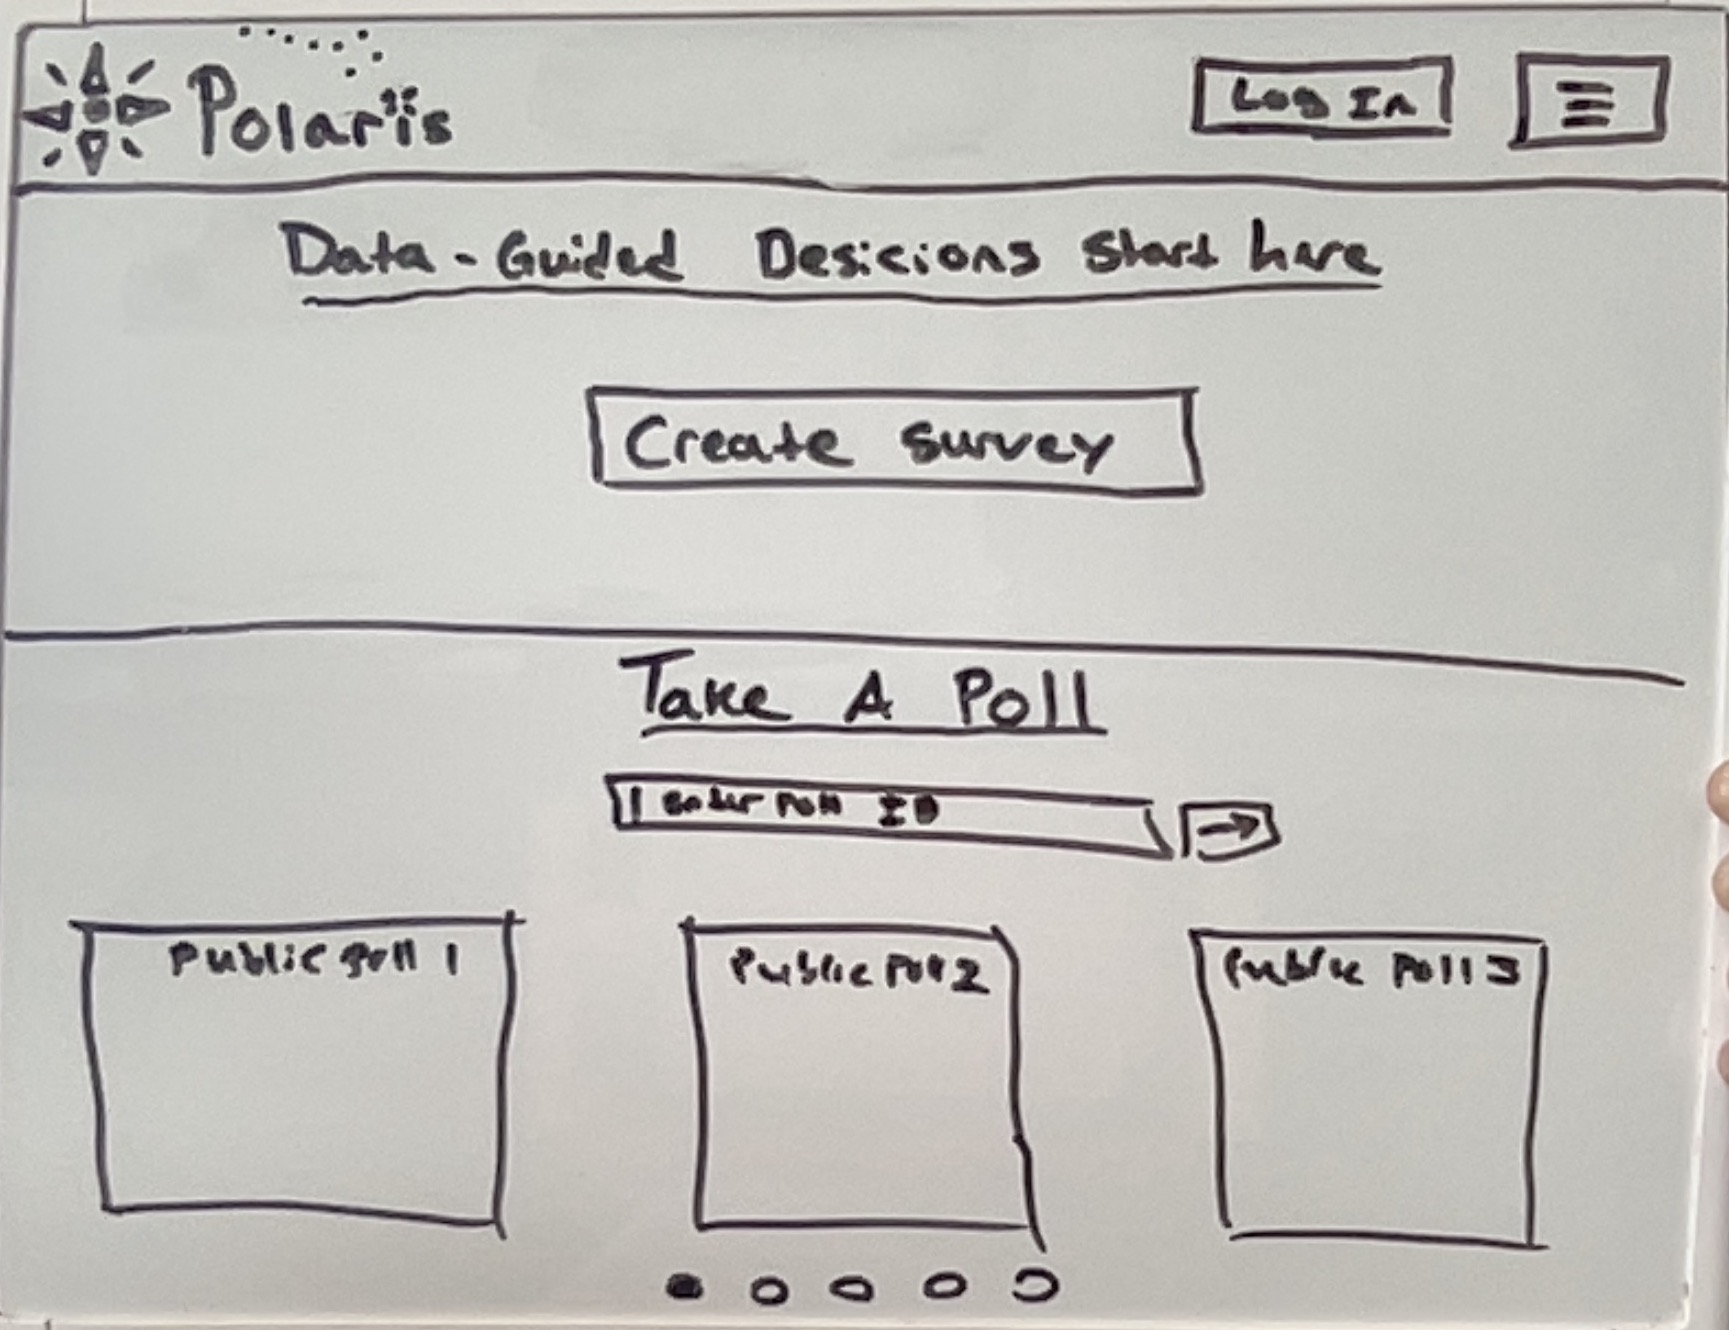 Polaris
Log In
Data-Guided Desicions Start here
Create Survey
Take A Poll
Enter Poll ID
Public Poll 1
Public Poll 2
Public Poll 3